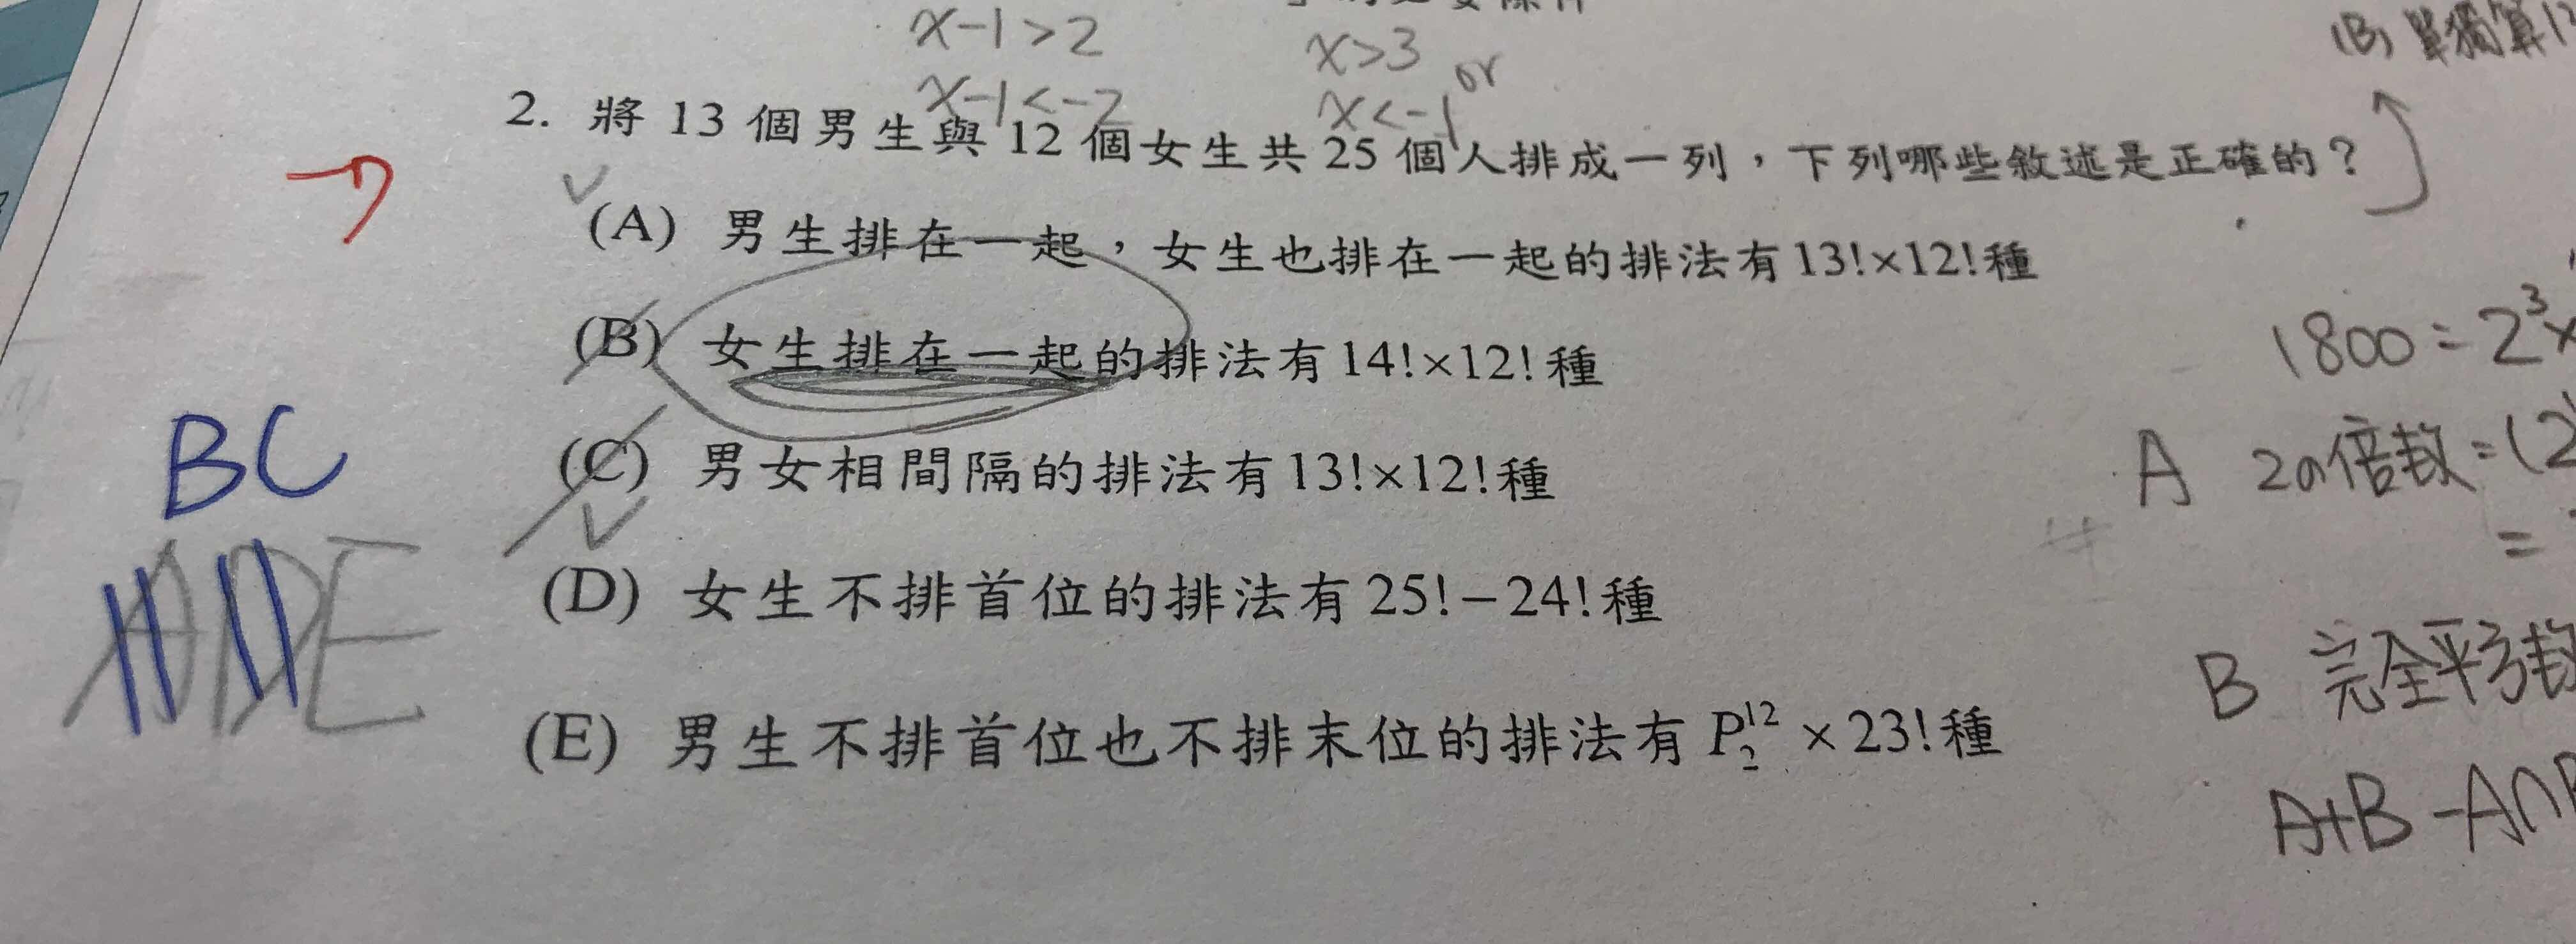 x-1>2 x>3
x-1<-2 x<-1 or
(B) 單獨算
2. 將 13 個男生與 12 個女生共 25 個人排成一列，下列哪些敘述是正確的？
(A) 男生排在一起，女生也排在一起的排法有 13!×12! 種
(B) 女生排在一起的排法有 14!×12! 種
1800=2³×
(C) 男女相間隔的排法有 13!×12! 種
BC
A 20倍數=(2
=
(D) 女生不排首位的排法有 25!－24! 種
ADE
B 完全平方數
(E) 男生不排首位也不排末位的排法有 P₂¹² × 23! 種
A+B-A∩B